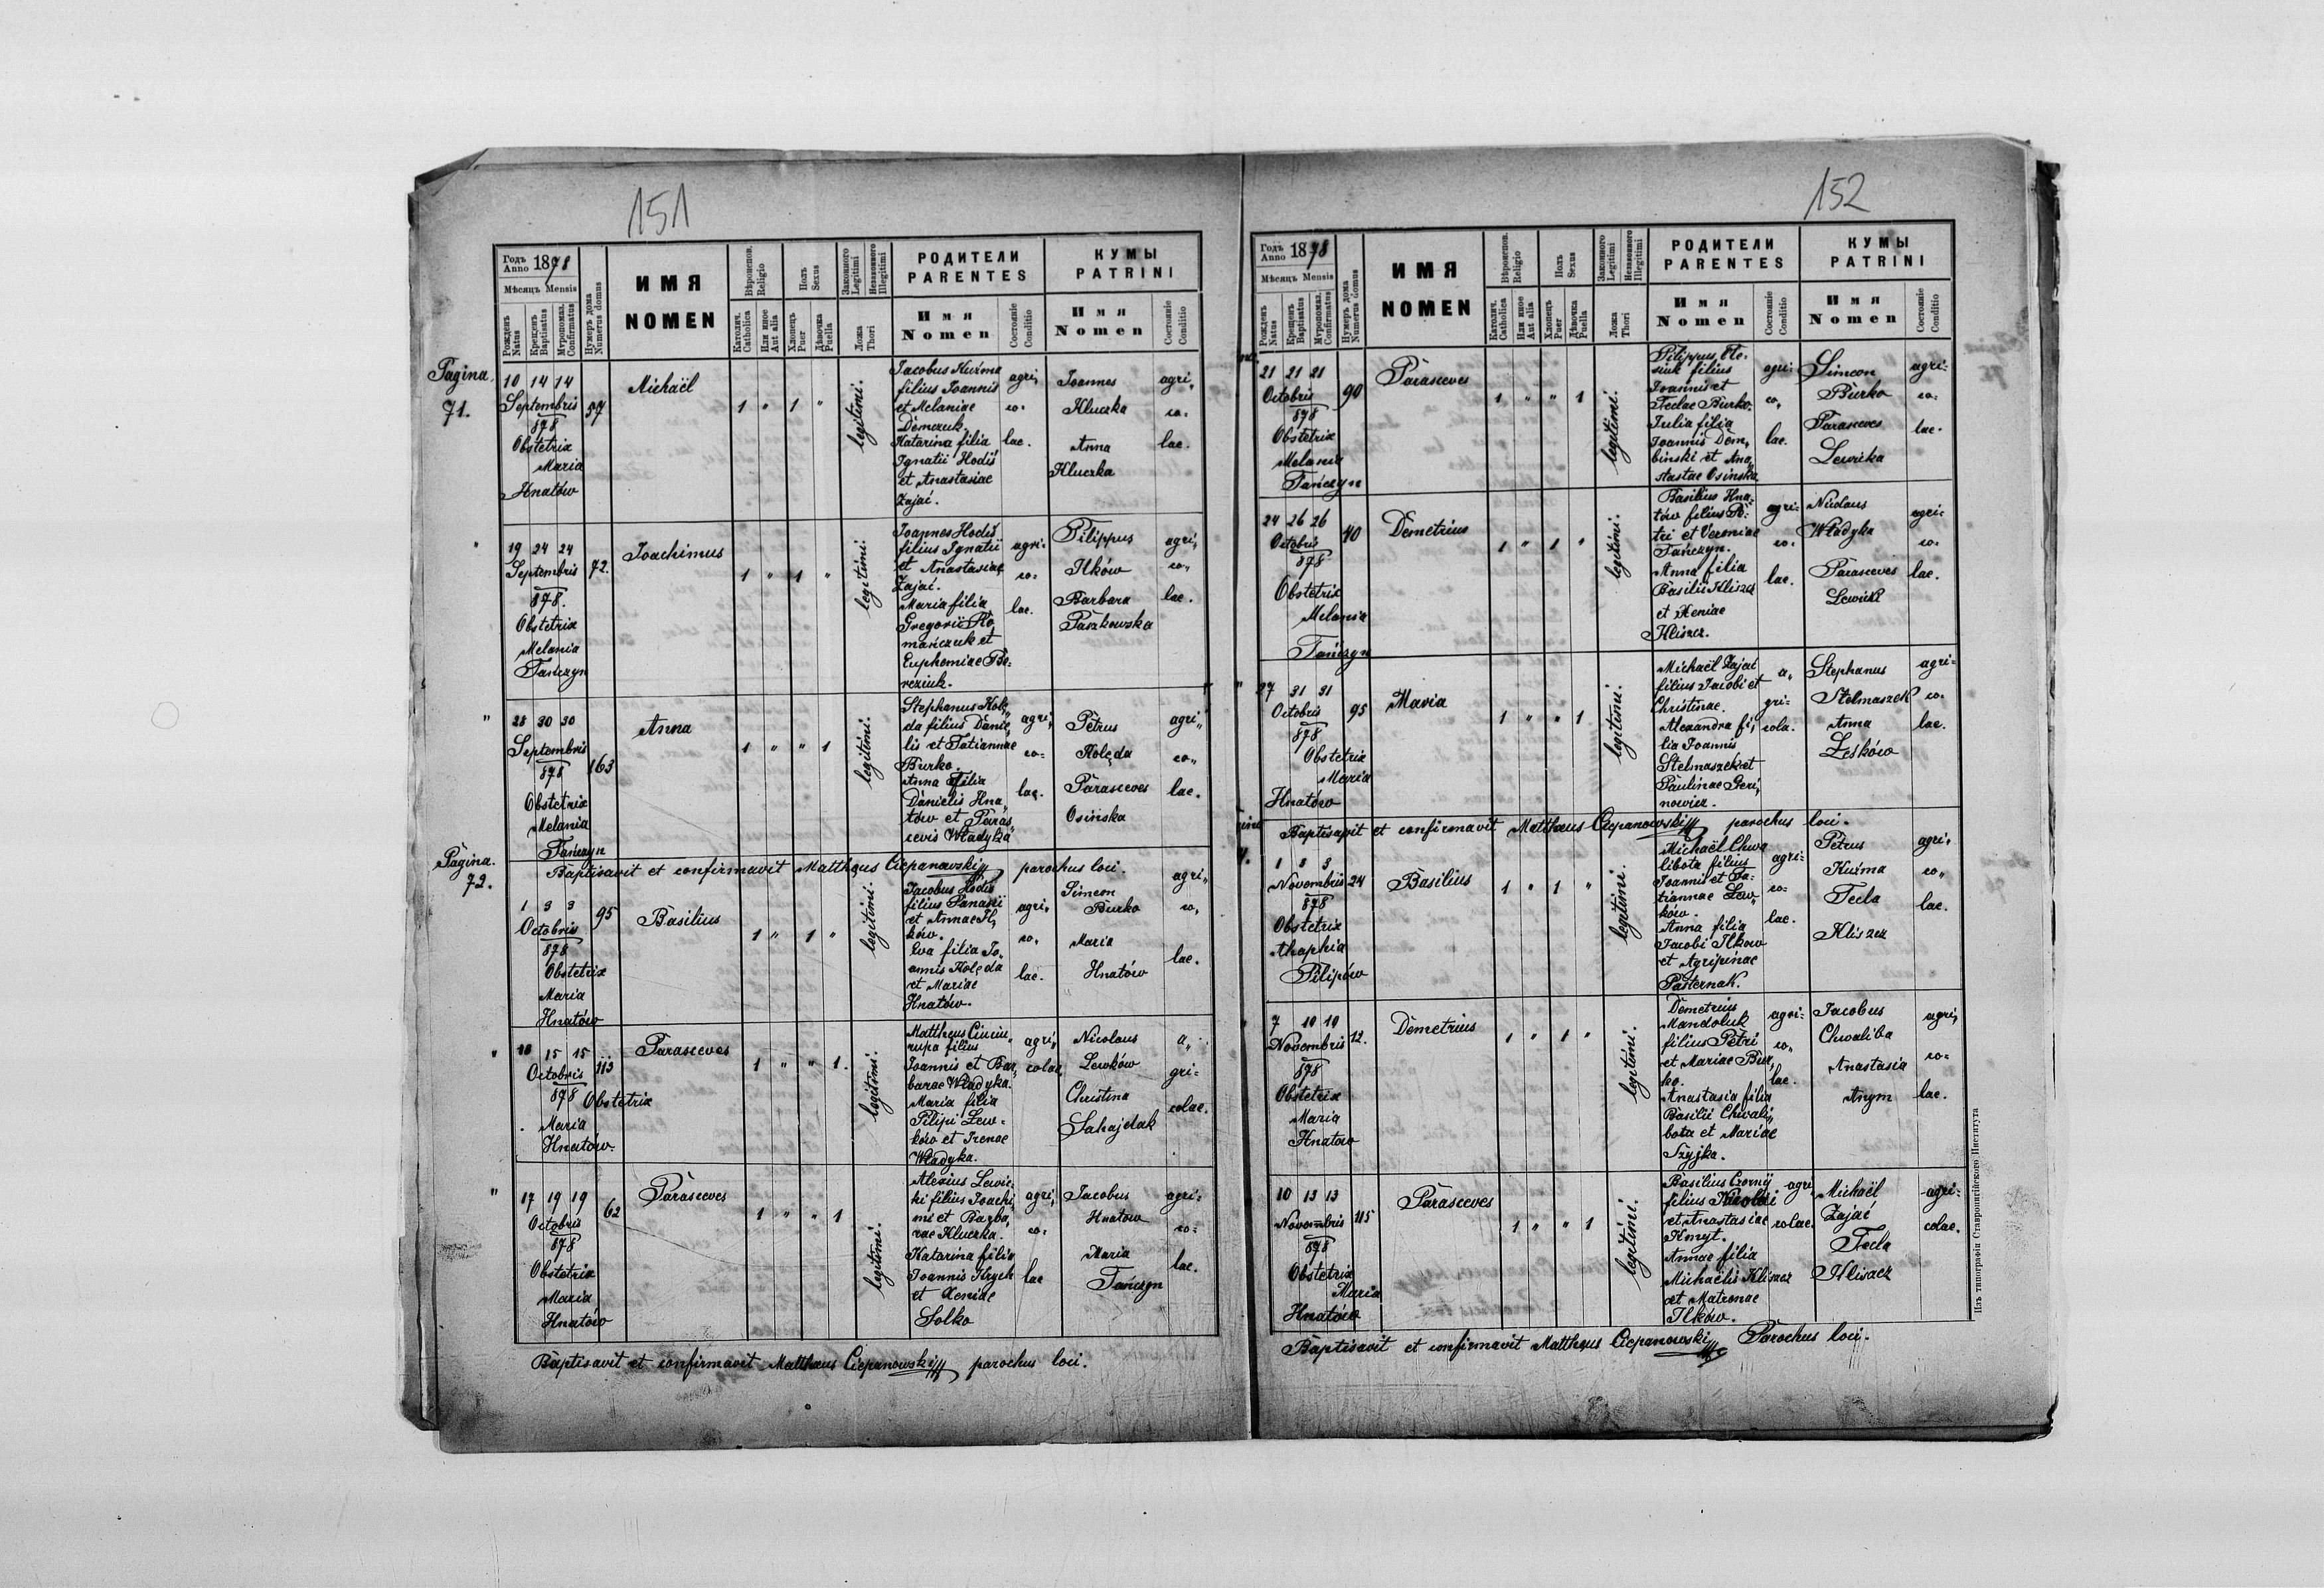 151
Годъ Anno 1878
Мѣсяцъ Mensis
Рожденъ Natus
Крещенъ Baptisatus
Муропомаз. Confirmatus
Нумеръ дома Numerus domus
ИМЯ
NOMEN
Вѣроиспов. Religio
Католич. Catholica
Или иное Aut alia
Полъ Sexus
Хлопецъ Puer
Дѣвочка Puella
Законного Legitimi
Незаконного Illegitimi
Ложа Thori
РОДИТЕЛИ
PARENTES
Имя
Nomen
Состояніе Conditio
КУМЫ
PATRINI
Имя
Nomen
Состояніе Conditio
Pagina
71.
10 14 14
Septembris
878
Obstetrix
Maria
Hnatów
57
Michaël
1 " 1 "
legitimi.
Jacobus Kuźma
filius Joannis
et Melaniae
Demczuk
Katarina filia
Ignatii Hodiś
et Anastasiae
Zajać.
agri,
co=
lae.
Joannes
Kluczka
Anna
Kluczka
agri,
co=
lae.
"
19 24 24
Septembris
878.
Obstetrix
Melania
Tańczyn
72.
Joachimus
1 " 1 "
legitimi.
Joannes Hodiś
filius Ignatii
et Anastasiae
Zajać.
Maria filia
Gregorii Ro,
mańczuk et
Euphemiae Be=
reziuk.
agri=
co=
lae.
Pilippus
Ilków
Barbara
Paszkowska
agri,
co,
lae.
"
28 30 30
Septembris
878
Obstetrix
Melania
Tańczyn
163
Anna
1 " " 1
legitimi.
Stephanus Kolę,
da filius Danie,
lis et Tatiannae
Burko.
Anna filia
Danielis Hna,
tów et Paras,
cevis Władyka
agri,
co=
lae.
Petrus
Kolęda
Parasceves
Osińska
agri,
co,
lae.
Baptisavit et confirmavit Matthaeus Ciepanowski parochus loci.
Pagina.
72.
1 3 3
Octobris
878
Obstetrix
Maria
Hnatów
95
Basilius
1 " 1 "
legitimi.
Jacobus Hodiś
filius Panasii
et Annae Il,
ków.
Eva filia Jo,
annis Kolęda
et Mariae
Hnatów.
agri,
co,
lae.
Simeon
Burko
Maria
Hnatów
agri,
co,
lae.
"
10 15 15
Octobris
878 Obstetrix
Maria
Hnatów
113
Parasceves
1 " " 1.
legitimi.
Joannis et Bar,
barae Władyka.
Maria filia
Pilipi Lew=
ków et Irenae
Władyka.
agri,
colae
Nicolaus
Lewków
Christina
Sahajdak
a,
gri=
colae.
"
17 19 19
Octobris
878
Obstetrix
Maria
Hnatów
62
Parasceves
1 " " 1
legitimi.
Alexius Lewic=
ki filius Joachi,
mi et Barba,
rae Kluczka.
Katarina filia
Joannis Hrych
et Xeniae
Solko
agri,
co=
lae
Jacobus
Hnatow
Maria
Tańczyn
agri=
co=
lae.
Baptisavit et confirmavit Matthaeus Ciepanowski parochus loci.
152
Годъ Anno 1878
Мѣсяцъ Mensis
Рожденъ Natus
Крещенъ Baptisatus
Муропомаз. Confirmatus
Нумеръ дома Numerus domus
ИМЯ
NOMEN
Вѣроиспов. Religio
Католич. Catholica
Или иное Aut alia
Полъ Sexus
Хлопецъ Puer
Дѣвочка Puella
Законного Legitimi
Незаконного Illegitimi
Ложа Thori
РОДИТЕЛИ
PARENTES
Имя
Nomen
Состояніе Conditio
КУМЫ
PATRINI
Имя
Nomen
Состояніе Conditio
21 21 21
Octobris
878
Obstetrix
Melania
Tańczyn
90
Parasceves
1 " " 1
legitimi.
filius
Joannis et
Teclae Burko.
Julia filia
Joannis Dem,
binski et Ana,
stasiae Osinska
agri=
co,
lae.
Simeon
Burko
Parasceves
Lewicka
agri=
co=
lae.
24 26 26
Octobris
878
Obstetrix
Melania
Tańczyn
40
Demetrius
1 " 1 "
legitimi.
Basilius Hna=
tów filius Pe=
tri et Veroniae
Tańczyn.
Anna filia
Basilii Kliszcz
et Xeniae
Kliszcz.
agri=
co=
lae.
Nicolaus
Władyka
Parasceves
agri=
co=
lae.
"
27 31 31
Octobris
878
Obstetrix
Maria
Hnatów
95
Maria
1 " " 1
legitimi.
Michaël Zajać
filius Jacobi et
Christinae.
Alexandra fi,
lia Joannis
Stelmaszek et
Paulinae Geri,
nowicz.
a,
gri=
cola.
Stephanus
Stelmaszek
Anna
Leśków
agri=
co=
lae.
Baptisavit et confirmavit Matthaeus Ciepanowski parochus loci.
1 3 3
Novembris
878
Obstetrix
Ahaphia
Pilipów
24
Basilius
1 " 1 "
legitimi.
Michaël Chwa
libota filius
Joannis et Ta=
tiannae Lew,
ków.
Anna filia
Jacobi Ilkow
et Agripinae
Pasternak.
agri=
co=
lae.
Petrus
Kuźma
Tecla
Kliszcz
agri,
co,
lae.
7 10 10
Novembris
878
Obstetrix
Maria
Hnatow
12.
Demetrius
1 " 1 "
legitimi.
Demetrius
Mandoluk
filius Petri
et Mariae Bur,
ko.
Anastasia filia
Basilii Chwali,
bota et Mariae
Szyjka.
agri=
co,
lae.
Jacobus
Chwaliba
Anastasia
Anym
agri,
co=
lae.
10 13 13
Novembris
878
Obstetrix
Maria
Hnatów
115
Parasceves
1 " " 1
legitimi.
Basilius Czornij
filius Nicolai
et Anastasiae
Kmyt.
Annae filia
Michaëlis Kliszcz
et Matronae
Ilków.
agri
colae.
Michaël
Zajać
Tecla
Kliszcz
agri=
colae.
Baptisavit et confirmavit Matthaeus Ciepanowski Parochus loci.
Изъ типографіи Ставропигійского Института